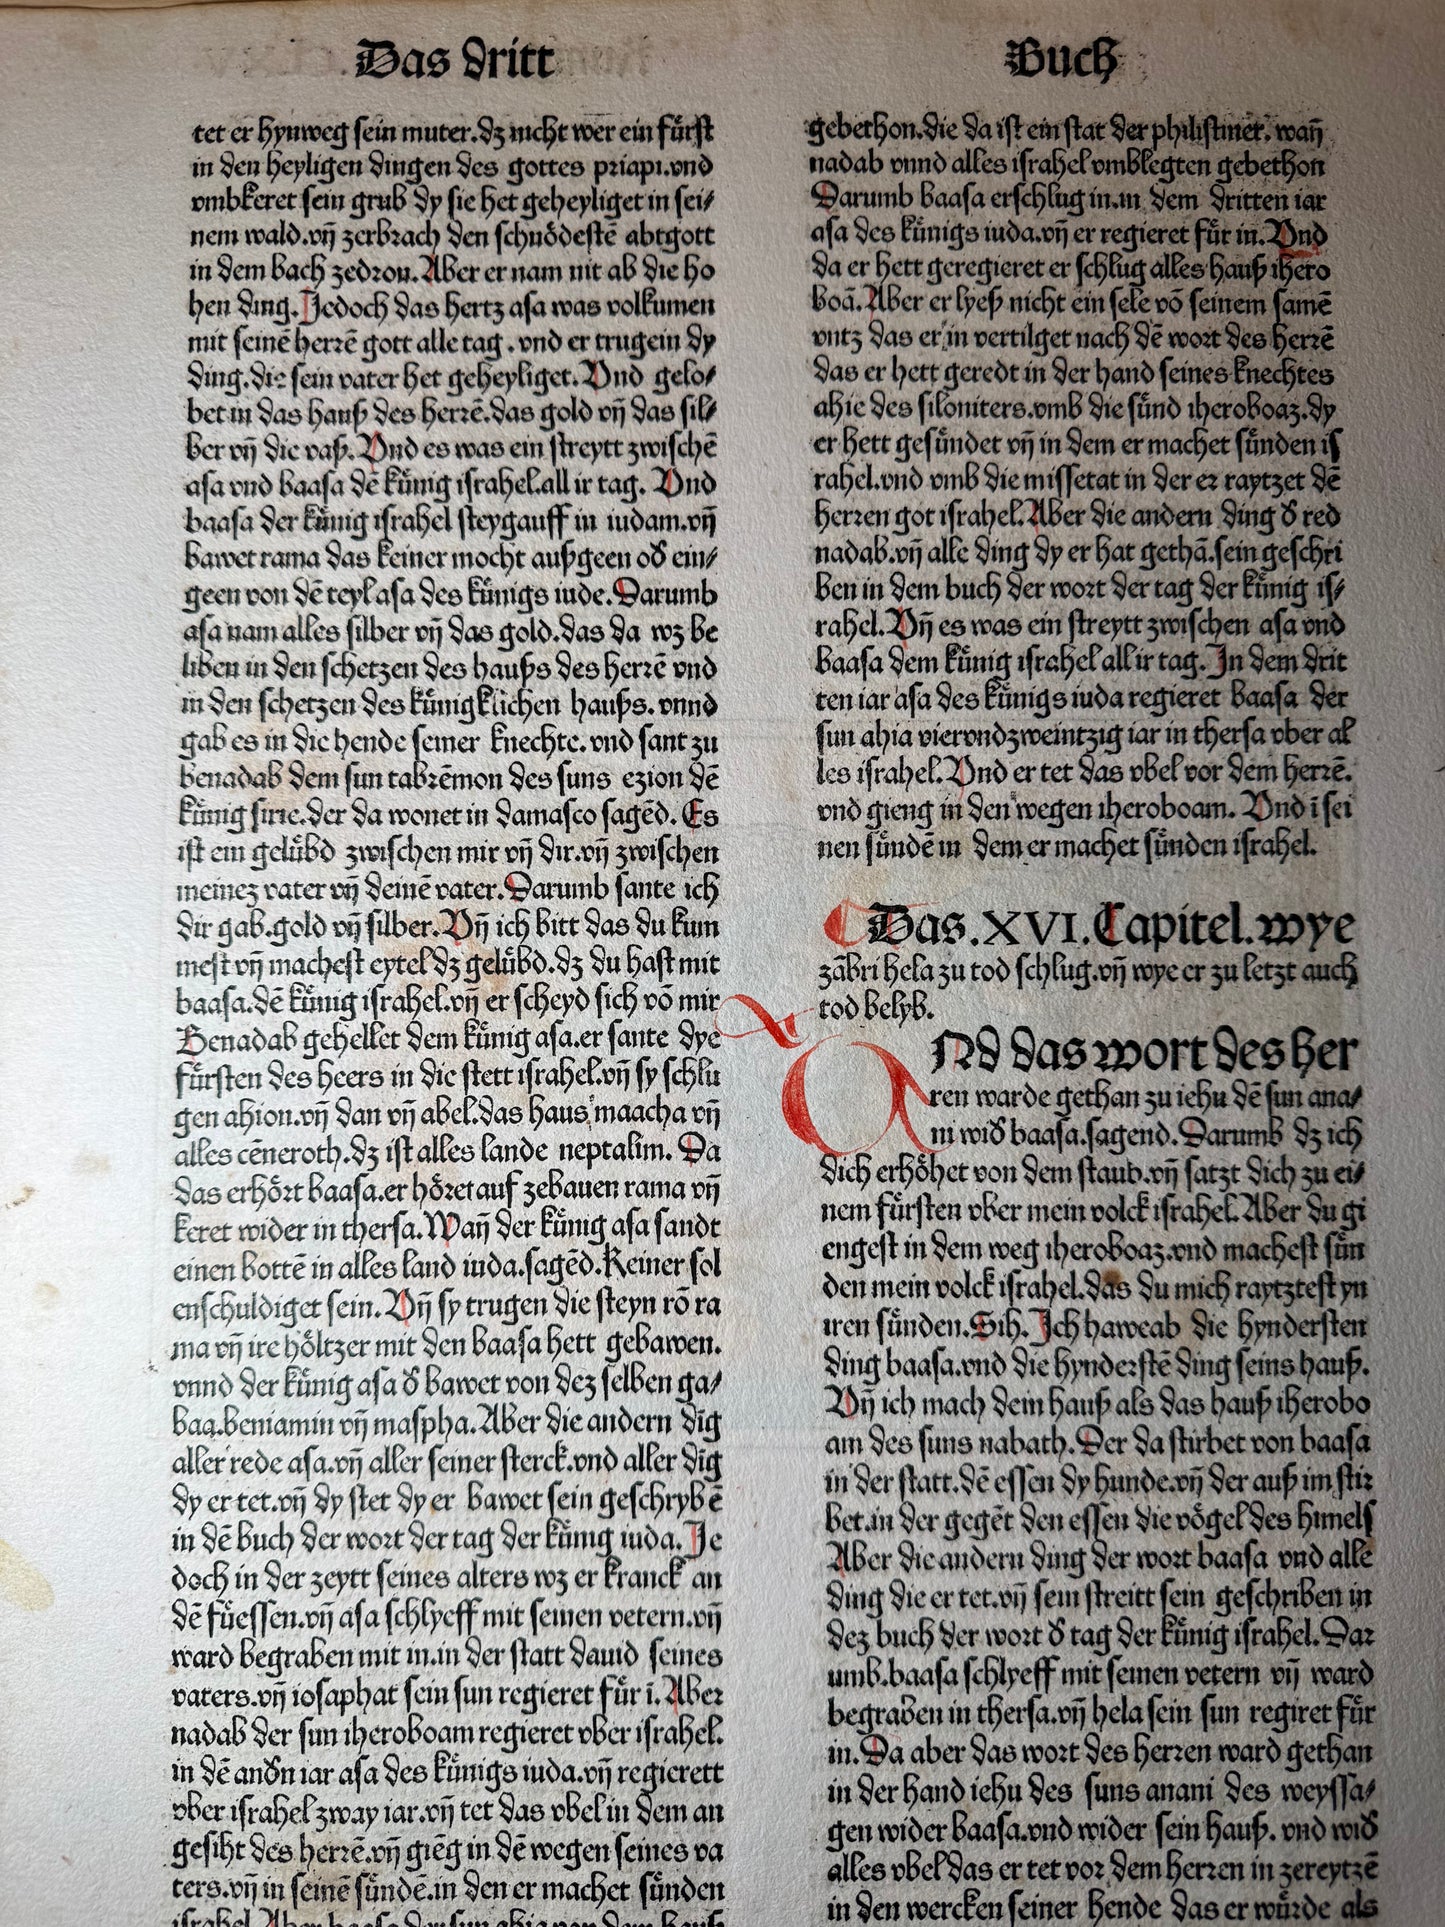 Das dritt
Buch
tet er hynweg sein muter.dz nicht wer ein fürst
in den heyligen dingen des gottes priapi.vnd
vmbkeret sein grub dy sie het geheyliget in sei⸗
nem wald.vn̄ zerbrach den schnödestē abtgott
in dem bach zedron. Aber er nam nit ab die ho
hen ding. Jedoch das hertz asa was volkumen
mit seinē herrē gott alle tag . vnd er trug ein dy
ding.die sein vater het geheyliget. Vnd gelo⸗
bet in das hauß des herrē.das gold vn̄ das sil⸗
ber vn̄ die vaß. Vnd es was ein streytt zwischē
asa vnd baasa dē künig israhel.all ir tag. Vnd
baasa der künig israhel steyg auff in iudam.vn̄
bawet rama das keiner mocht außgeen od̕ ein⸗
geen von dē teyl asa des künigs iude. Darumb
asa nam alles silber vn̄ das gold.das da wz be
liben in den schetzen des haußs des herrē vnd
in den schetzen des künigklichen haußs. vnnd
gab es in die hende seiner knechte. vnd sant zu
benadab dem sun tabrēmon des suns ezion dē
künig sirie.der da wonet in damasco sagēd. Es
ist ein gelübd zwischen mir vn̄ dir.vn̄ zwischen
meinez vater vn̄ deinē vater. Darumb sante ich
dir gab.gold vn̄ silber. Vn̄ ich bitt das du kum
mest vn̄ machest eytel dz gelübd.dz du hast mit
baasa.dē künig israhel.vn̄ er scheyd sich vō mir
Benadab gehellet dem künig asa.er sante dye
fürsten des heers in die stett israhel.vn̄ sy schlu
gen ahion.vn̄ dan vn̄ abel.das haus maacha vn̄
alles cēneroth.dz ist alles lande neptalim. Da
das erhört baasa.er höret auf zebauen rama vn̄
keret wider in thersa. Wan̄ der künig asa sandt
einen bottē in alles land iuda.sagēd. Keiner sol
enschuldiget sein. Vn̄ sy trugen die steyn vō ra
ma vn̄ ire höltzer mit den baasa hett gebawen.
vnnd der künig asa d̕ bawet von dez selben ga⸗
baa.beniamin vn̄ maspha. Aber die andern dīg
aller rede asa.vn̄ aller seiner sterck.vnd aller dīg
dy er tet.vn̄ dy stet dy er bawet sein geschrybē
in dē buch der wort der tag der künig iuda. Je
doch in der zeytt seines alters wz er kranck an
dē füessen.vn̄ asa schlyeff mit seinen vetern.vn̄
ward begraben mit in.in der statt dauid seines
vaters.vn̄ iosaphat sein sun regieret für ī. Aber
nadab der sun iheroboam regieret vber israhel.
in dē and̕n iar asa des künigs iuda.vn̄ regierett
vber israhel zway iar.vn̄ tet das vbel in dem an
gesiht des herrē.vn̄ giēg in dē wegen seines va
ters.vn̄ in seinē sündē.in den er machet sünden
israhel. Aber baasa der sun ahia von dem hauß
gebethon.die da ist ein stat der philistiner. wan̄
nadab vnnd alles israhel vmblegten gebethon
Darumb baasa erschlug in.in dem dritten iar
asa des künigs iuda.vn̄ er regieret für in. Vnd
da er hett geregieret er schlug alles hauß ihero
boā. Aber er lyeß nicht ein sele vō seinem samē
vntz das er in vertilget nach dē wort des herrē
das er hett geredt in der hand seines knechtes
ahie des siloniters.vmb die sünd iheroboaz.dy
er hett gesündet vn̄ in dem er machet sünden is
rahel.vnd vmb die missetat in der er raytzet dē
herren got israhel. Aber die andern ding d̕ red
nadab.vn̄ alle ding dy er hat gethā.sein geschri
ben in dem buch der wort der tag der künig is⸗
rahel. Vn̄ es was ein streytt zwischen asa vnd
baasa dem künig israhel all ir tag. In dem drit
ten iar asa des künigs iuda regieret baasa der
sun ahia viervndzweintzig iar in thersa vber al
les israhel. Vnd er tet das vbel vor dem herrē.
vnd gieng in den wegen iheroboam. Vnd ī sei
nen sündē in dem er machet sünden israhel.
Das.XVI. Capitel. wye
zābri hela zu tod schlug.vn̄ wye er zu letzt auch
tod belyb.
VNd das wort des her
ren warde gethan zu iehu dē sun ana⸗
ni wid̕ baasa.sagend. Darumb dz ich
dich erhöhet von dem staub.vn̄ satzt dich zu ei⸗
nem fürsten vber mein volck israhel. Aber du gi
engest in dem weg iheroboaz.vnd machest sün
den mein volck israhel.das du mich raytztest yn
iren sünden. Sih. Ich haw eab die hyndersten
ding baasa.vnd die hynderstē ding seins hauß.
Vn̄ ich mach dein hauß als das hauß iherobo
am des suns nabath. Der da stirbet von baasa
in der statt.dē essen dy hunde.vn̄ der auß im stir
bet.in der gegēt den essen die vögel des himels
Aber die andern ding der wort baasa vnd alle
ding die er tet.vn̄ sein streitt sein geschriben in
dez buch der wort d̕ tag der künig israhel. Dar
umb.baasa schlyeff mit seinen vetern vn̄ ward
begraben in thersa.vn̄ hela sein sun regiret für
in. Da aber das wort des herren ward gethan
in der hand iehu des suns anani des weyssa⸗
gen wider baasa.vnd wider sein hauß. vnd wid̕
alles vbel das er tet vor dem herren in zereytzē
in den wercken seiner hende das er würde als